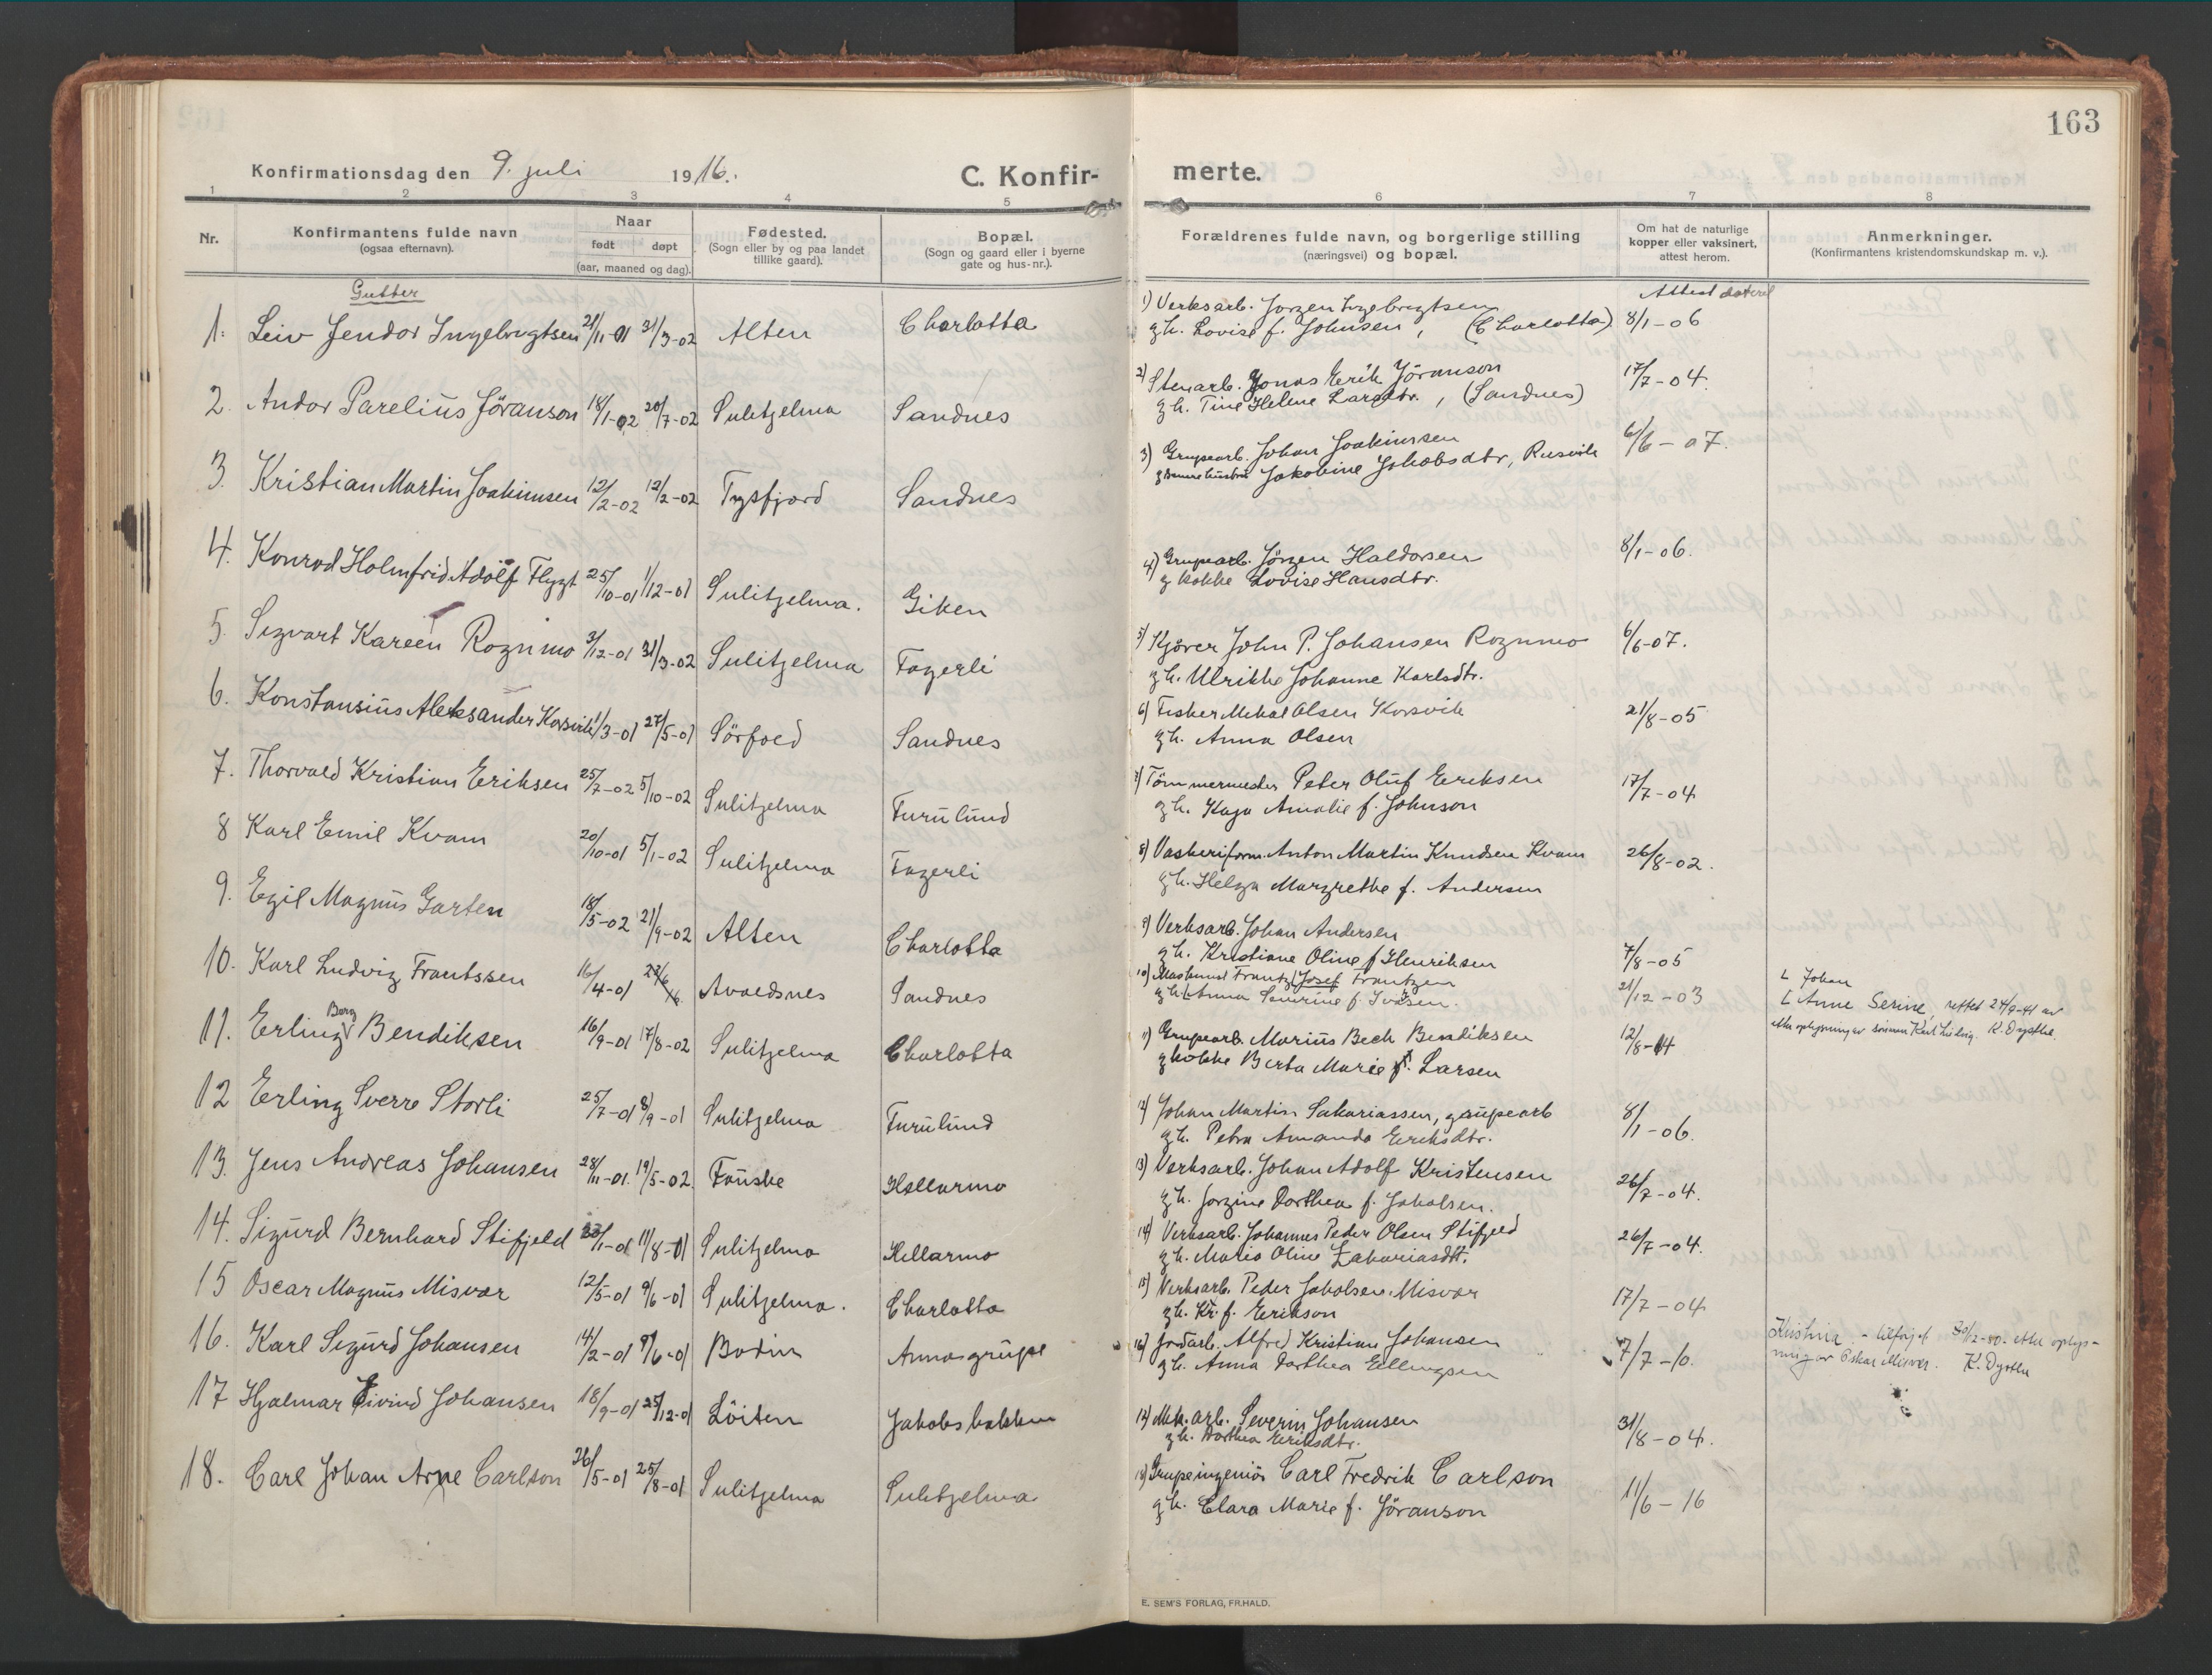 163
Konfirmationsdag den 9. juli 1916.
C. Konfir-
merte.
1 2 3 4 5 6 7 8
Nr.
Konfirmantens fulde navn
(ogsaa efternavn).
Naar
født døpt
(aar, maaned og dag).
Fødested.
(Sogn eller by og paa landet
tillike gaard).
Bopæl.
(Sogn og gaard eller i byerne
gate og hus-nr.).
Forældrenes fulde navn, og borgerlige stilling
(næringsvei) og bopæl.
Om hat de naturlige
kopper eller vaksinert,
attest herom.
Anmerkninger.
(Konfirmantens kristendomskundskap m. v.).
Gutter
Attest datert
1. Leiv Jendor Ingebrigtsen 21/11-01 31/3-02 Alten Charlotta
1) Verksarb. Jørgen Ingebrigtsen
g h. Lovise f. Johnsen, (Charlotta) 8/1-06
2. Andor Parelius Jöranson 18/1-02 20/7-02 Sulitjelma Sandnes
2) Stenarb. Jonas Erik Jöranson 17/7-04.
g h. Tine Helene Larsdtr., (Sandnes)
3. Kristian Martin Joakimsen 12/2-02 12/2-02 Tysfjord Sandnes
3) Grupearb. Johan Joakimsen 6/6-07.
Jakobine Jakobsdtr, Rusvik
4. Konrad Holmfrid Adolf Flygt 25/10-01 1/12-01 Sulitjelma. Giken
4) Grupearb. Jörgen Haldorsen 8/1-06.
g kokke Lovise Hansdtr.
5. Sigvart Kareen Rognmo 3/12-01 31/3-02 Sulitjelma Fagerli
5) Kjører John P. Johansen Rognmo 6/6-07.
g h. Ulrikke Johanne Karlsdtr.
6. Konstansius Aleksander Korsvik 1/3-01 27/5-01 Sörfold Sandnes
6) Fisker Mekal Olsen Korsvik 21/8-05
g h. Anna Olsen
7. Thorvald Kristian Eriksen 25/7-02 5/10-02 Sulitjelma Furulund
7) Tömmermester Peter Oluf Eriksen 17/7-04
g h. Kaja Amalie f. Johnson
8 Karl Emil Kvam 20/10-01 5/1-02 Sulitjelma Fagerli
8) Vaskeriform. Anton Martin Knudsen Kvam 26/8-02.
g h. Helga Margrethe f. Andersen
9. Egil Magnus Garten 18/5-02 21/9-02 Alten Charlotta
9) Verksarb. Johan Andersen
g h. Kristiane Oline f Henriksen 7/8-05
10. Karl Ludvig Frantssen 16/4-01 Avaldsnes Sandnes
10) Maskinist Frantz Josef Frantzen 21/12-03
g h. Anna Severine f. Ivarsen.
L Johan
L Anne Serine, rettet 24/9-41 av
K. Dysthe.
11. Erling Berg Bendiksen 16/9-01 17/8-02 Sulitjelma Charlotta
11) Grupearb. Marius Bech Bendiksen 12/8-14
g kokke Berta Marie f. Larsen
12 Erling Sverre Storli 25/7-01 8/9-01 Sulitjelma Furulund
12) Johan Martin Sakariassen, grupearb 8/1-06.
g h. Petra Amanda Eriksdtr.
13. Jens Andreas Johansen 28/11-01. 19/5-02. Fauske Hellarmo
13) Verksarb. Johan Adolf Kristensen 26/7-04.
g h. Jorgine Dorthea f. Jakobsen.
14. Sigurd Bernhard Stifjeld 23/1-01 11/8-01 Sulitjelma Hellarmo
14) Verksarb. Johannes Peder Olsen Stifjeld 26/7-04.
g h. Maria Oline Zakariasdtr.
15 Oscar Magnus Misvær 12/5-01 9/6-01 Sulitjelma. Charlotta
15) Verksarb. Peder Jakobsen Misvær 17/7-04
g h. Kr. f. Erikson
16. Karl Sigurd Johansen 14/2-01 9/6-01 Bodin Annasgrupe
16) Jordarb. Alfred Kristian Johansen 7/7-10.
g h. Anna Dorthea Ellingsen
Kristina - tilføjet 30/12-80. etter oplys-
ning av Oskar Misvær. K. Dysthe
17 Hjalmar Eivind Johansen 18/9-01 25/12-01 Löiten Jakobsbakken
17) Mek. arb. Severin Johansen 31/8-04.
g h. Dorthea Eriksdtr.
18. Carl Johan Arne Carlson 26/5-01 25/8-01 Sulitjelma Sulitjelma
18) Grupeingeniör Carl Fredrik Carlson 11/6-16
g h. Clara Marie f. Jöranson
E. SEM'S FORLAG, FR.HALD.